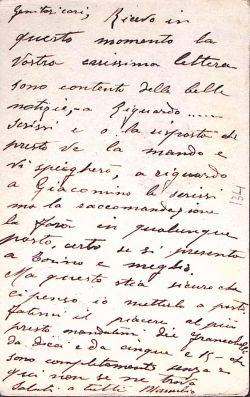 Genitori cari, Ricevo in
questo momento la
vostra carissima lettera
sono contento delle belle
notizie, - a Riguardo .....
scrissi e o la risposta che
presto ve la mando e
vi spiegherò, a riguardo
a Giacomino le scrissi
ma la raccomandazione
la farà in qualunque
posto, certo se si presenta
a Torino e meglio.
Ma questo stia sicuro che
ci penso io metterlo a posto,
fatemi il piacere al più
presto mandatemi dei francobolli
da dieci e da cinque e K- che
sono completamente senza e
qui non se ne trova
Saluti a tutti
134